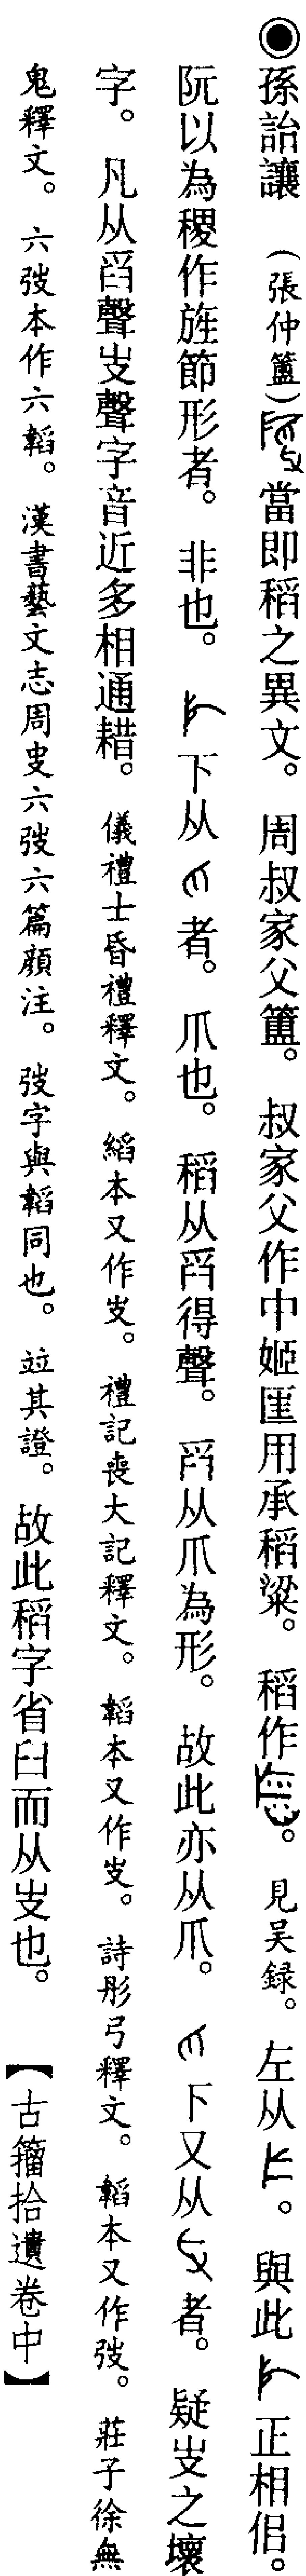 ●孫詒讓　（張仲簠）當即稻之異文。周叔家父簠。叔家父作中姬匩用承稻粱。稻作。見吴録。左从。與此正相侣。
阮以為稷作旌節形者。非也。下从者。爪也。稻从舀得聲。舀从爪為形。故此亦从爪。下又从者。疑㞢之壞
字。凡从舀聲㞢聲字音近多相通耤。儀禮士昏禮釋文。縚本又作㞢。禮記喪大記釋文。韜本又作㞢。詩彤弓釋文。韜本又作弢。莊子徐無
鬼釋文。六弢本作六韜。漢書藝文志周史六弢六篇顔注。弢字與韜同也。竝其證。故此稻字省臼而从㞢也。【古籀拾遺卷中】